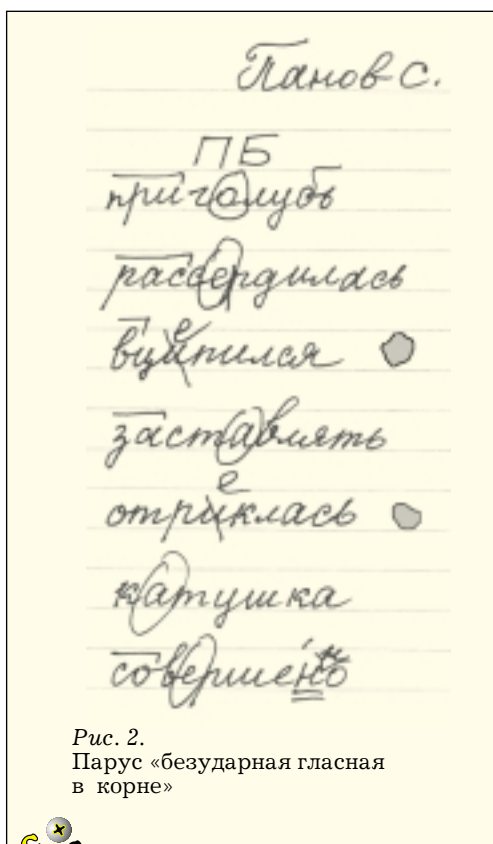 Панов С.
ПБ
приголубь
рассердилась
е
вципился
заставлять
е
отриклась
катушка
совершенно
Рис. 2.
Парус «безударная гласная
в корне»